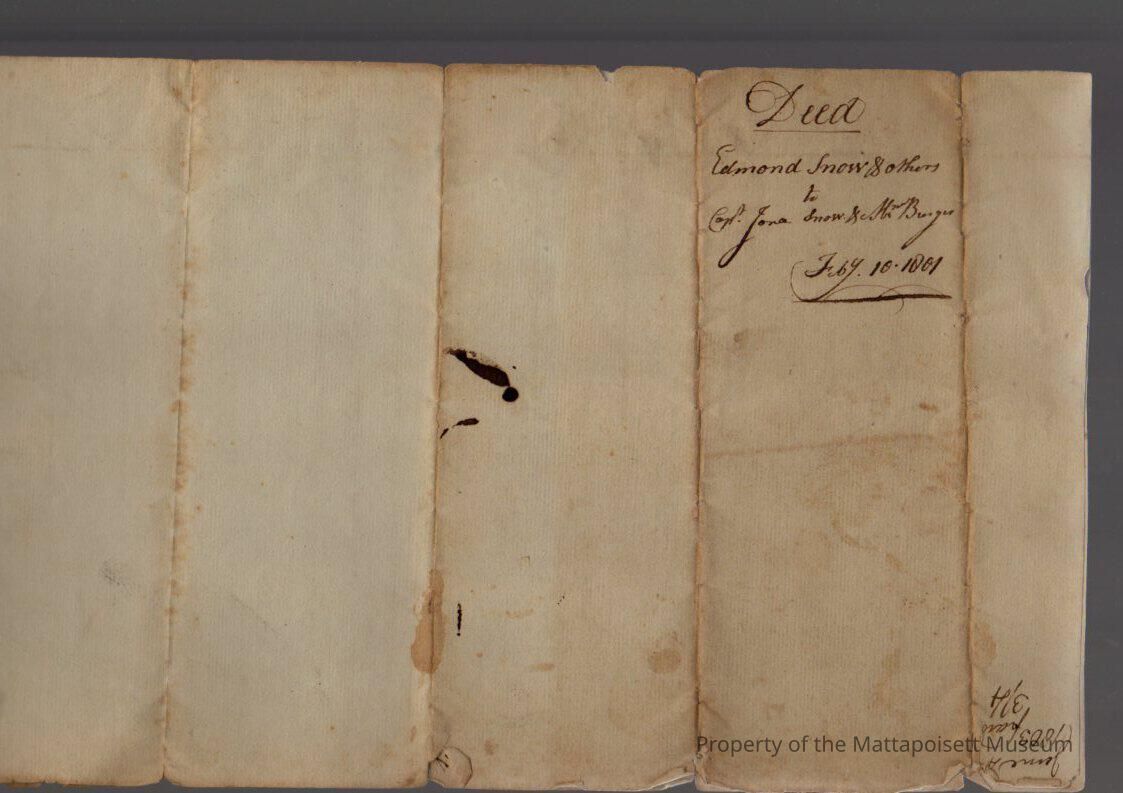 Deed
Edmond Snow & others
to
Capt. Jona Snow & Wm Burges
Feby. 10. 1801
June
1803
paid
3/4
Property of the Mattapoisett Museum